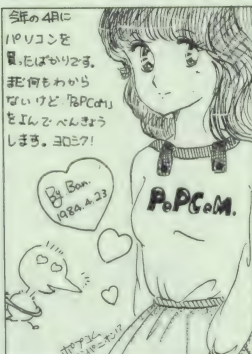 今年の4月に
パソコンを
買ったばかりです。
まだ何もわから
ないけど「PePCoM」
をよんで べんきょう
します。ヨロシク!
By Bon.
1984.4.23
PePCoM.
ポプコム